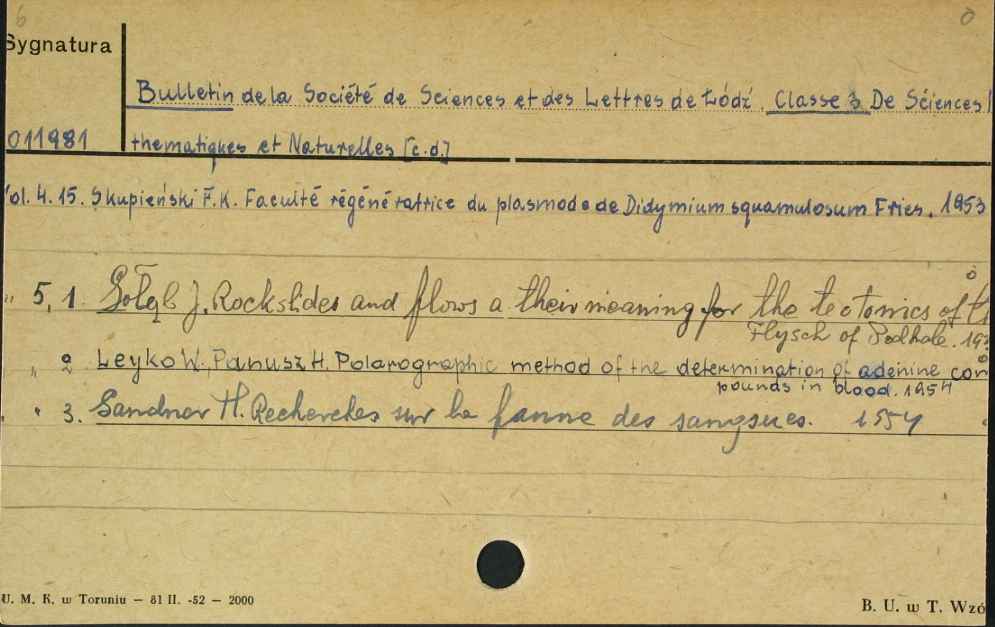 6 0
Sygnatura
Bulletin de la Société de Sciences et des Lettres de Łódź. Classe 3 De Sciences
011981 thematiques et Naturelles [c.d.]
Vol. 4. 15. Skupieński F.K. Faculté régénératrice du plasmode de Didymium squamulosum Fries. 1953
" 5, 1. Gołąb J. Rockslides and flows a their meaning for the tectonics of t
Flysch of Podhale. 195
" " 2 Leyko W., Panusz H. Polarographic method of the determination of adenine com
pounds in blood. 1954
" " 3. Sandner H. Recherches sur la faune des sangsues. 1954
U. M. K. w Toruniu — 81 II. -52 — 2000
B. U. w T. Wzó